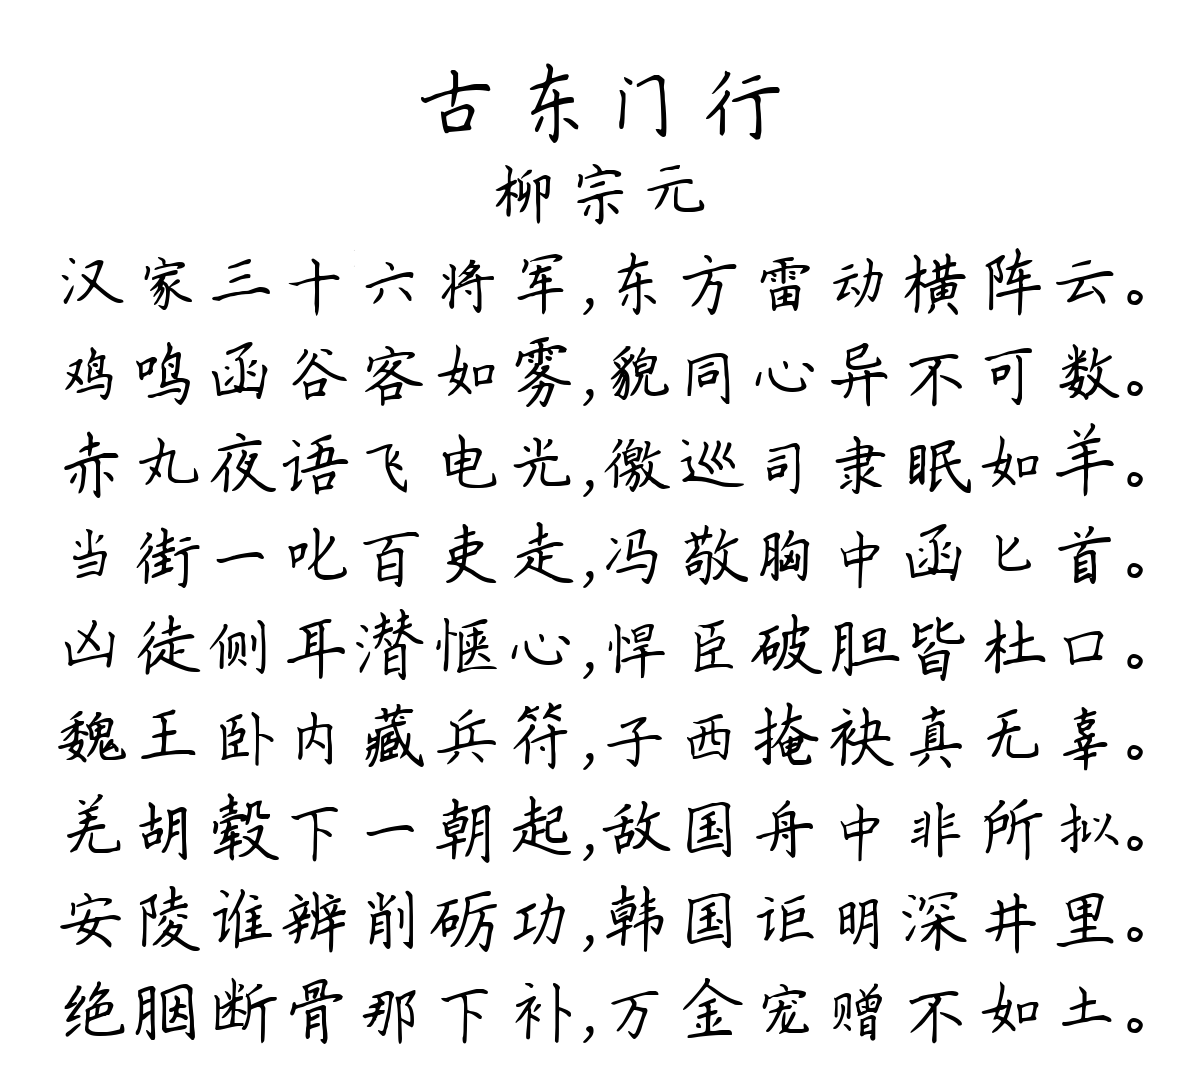 古东门行
柳宗元
汉家三十六将军,东方雷动横阵云。
鸡鸣函谷客如雾,貌同心异不可数。
赤丸夜语飞电光,徼巡司隶眠如羊。
当街一叱百吏走,冯敬胸中函匕首。
凶徒侧耳潜惬心,悍臣破胆皆杜口。
魏王卧内藏兵符,子西掩袂真无辜。
羌胡毂下一朝起,敌国舟中非所拟。
安陵谁辨削砺功,韩国讵明深井里。
绝胭断骨那下补,万金宠赠不如土。